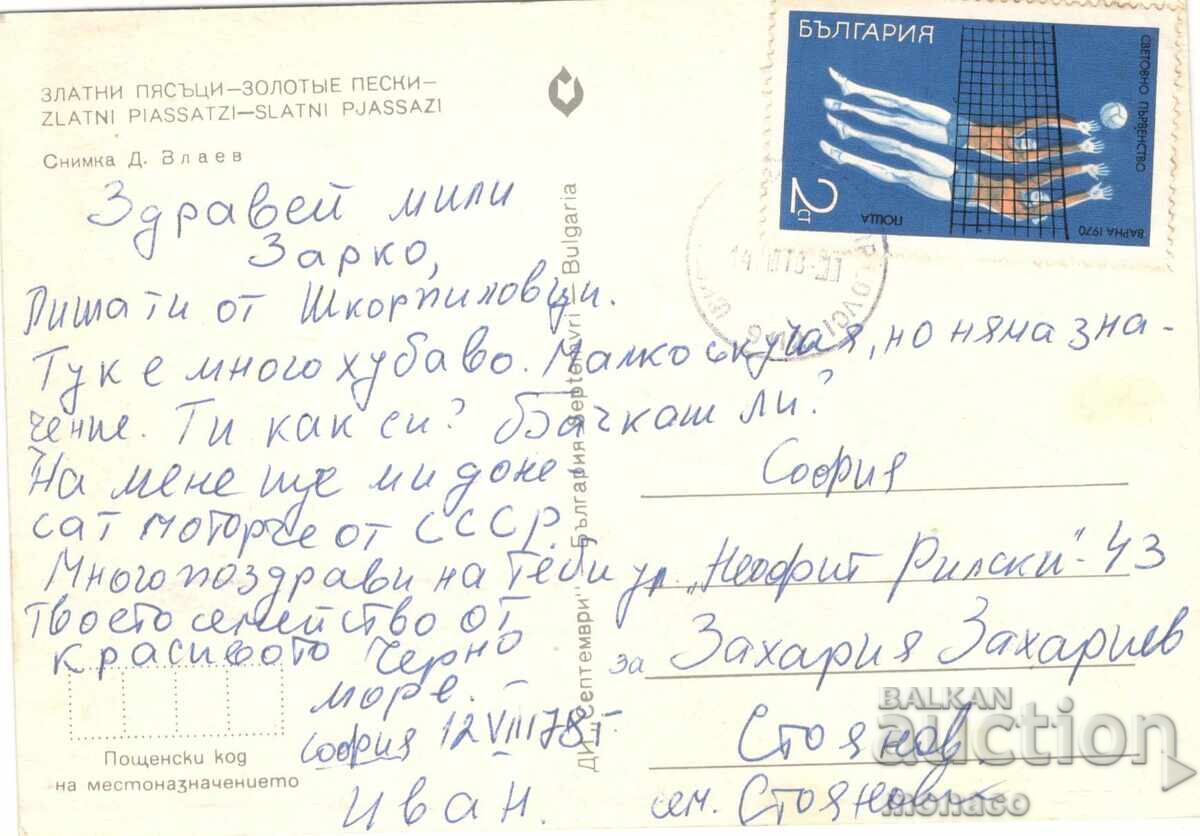 ЗЛАТНИ ПЯСЪЦИ—ЗОЛОТЫЕ ПЕСКИ—
ZLATNI PIASSATZI—SLATNI PJASSAZI
Снимка Д. Влаев
Здравей мили
Зарко,
Пиша ти от Шкорпиловци.
Тук е много хубаво. Малко скучая, но няма зна-
чение. Ти как си? Бачкаш ли?
На мене ще ми доне
сат моторче от СССР.
Много поздрави на теб и
твоето семейство от
красивото Черно
море.
София 12 VIII 78 г
Иван.
Пощенски код
на местоназначението
ДИ „Септември" — България — Septemvri — Bulgaria
БЪЛГАРИЯ
СВЕТОВНО ПЪРВЕНСТВО
ВАРНА 1970
ПОЩА
2 СТ
София
ул. „Неофит Рилски" - 43
за Захария Захариев
Стоянов
сем. Стоянови
BALKAN
auction
monaco